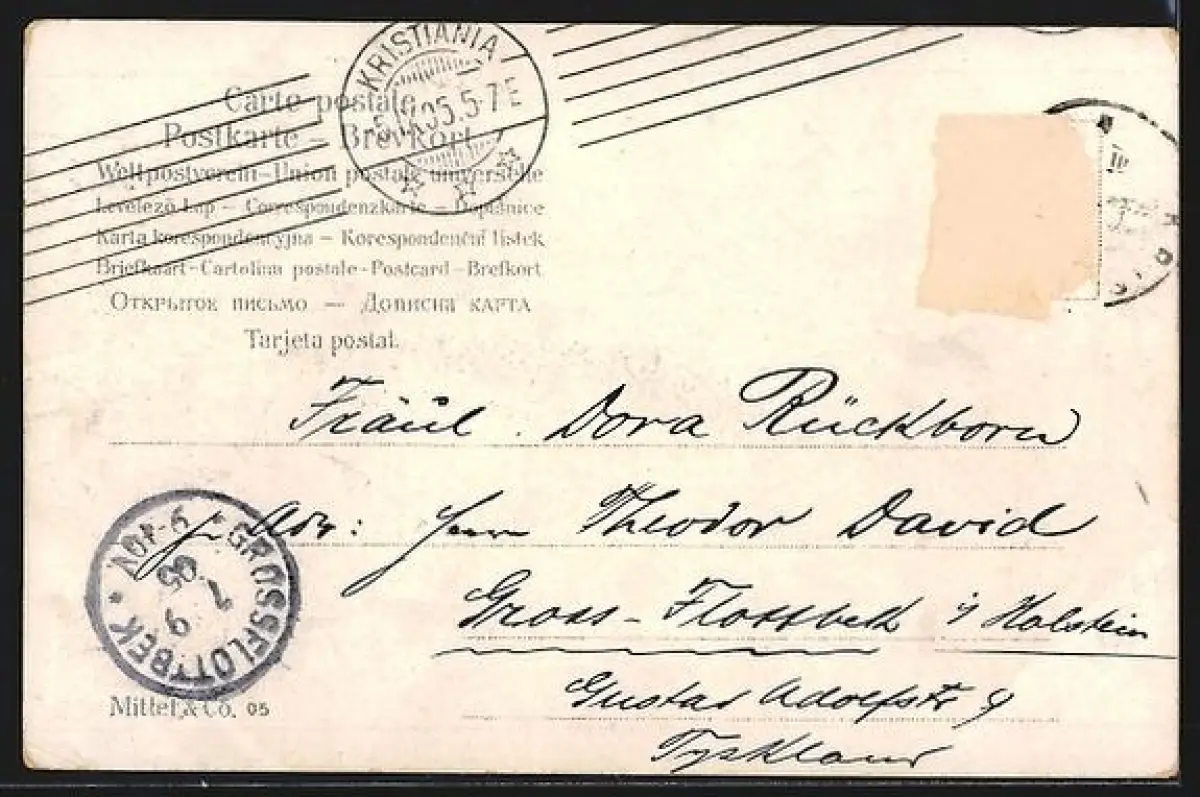 KRISTIANIA
05.5-7 E
Carte postale
Postkarte – Brevkort
Weltpostverein–Union postale universelle
Levelező Lap – Correspondenzkarte – Dopisnice
Karta korespondencyjna – Korespondenční lístek
Briefkaart–Cartolina postale–Postcard–Brefkort
Открытое письмо — Дописна карта
Tarjeta postal.
Fräul. Dora Rückborn
Adr: Herrn Theodor David
Gross-Flottbek i/ Holstein
Gustav Adolfstr 9
Tyskland
GROSSFLOTTBEK
7 9
05
Mittel & Co. 05